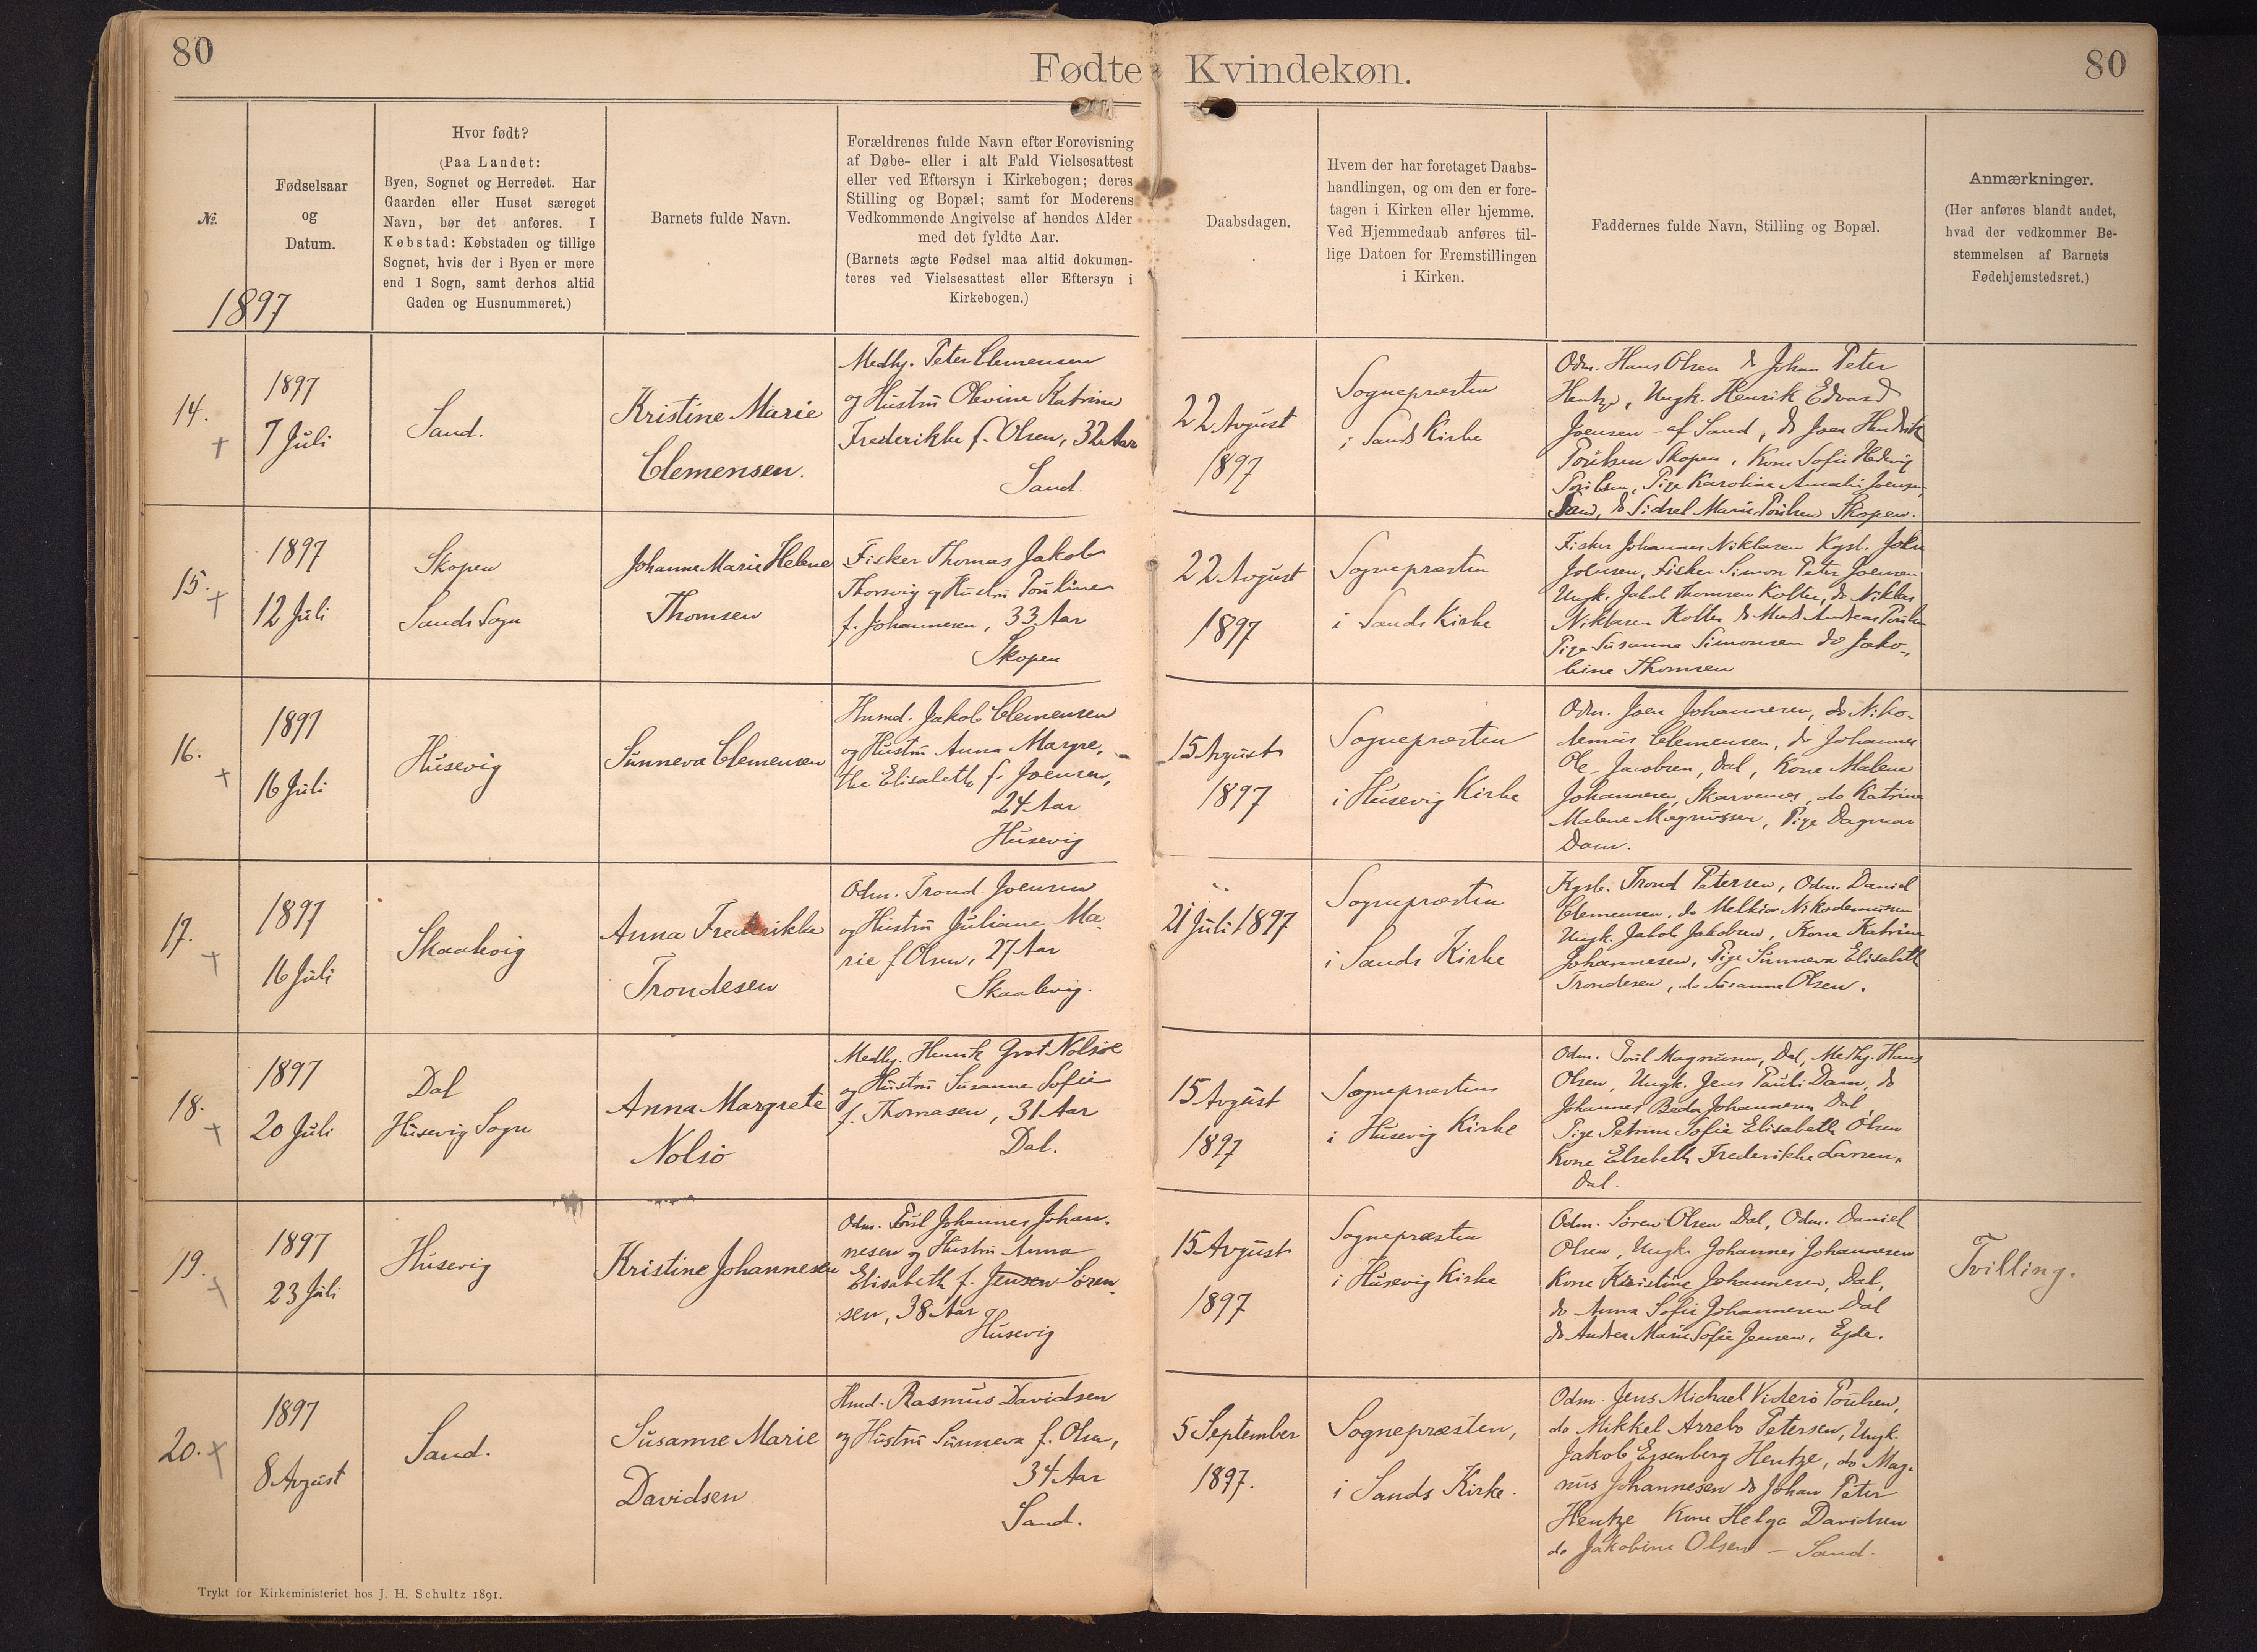 80
Fødte Kvindekøn.
80
№.
Fødselsaar
og
Datum.
1897
Hvor født?
(Paa Landet:
Byen, Sognet og Herredet. Har
Gaarden eller Huset særeget
Navn, bør det anføres. I
Købstad: Købstaden og tillige
Sognet, hvis der i Byen er mere
end 1 Sogn, samt derhos altid
Gaden og Husnummeret.)
Barnets fulde Navn.
Forældrenes fulde Navn efter Forevisning
af Døbe- eller i alt Fald Vielsesattest
eller ved Eftersyn i Kirkebogen; deres
Stilling og Bopæl; samt for Moderens
Vedkommende Angivelse af hendes Alder
med det fyldte Aar.
(Barnets ægte Fødsel maa altid dokumen-
teres ved Vielsesattest eller Eftersyn i
Kirkebogen.)
Daabsdagen.
Hvem der har foretaget Daabs-
handlingen, og om den er fore-
tagen i Kirken eller hjemme.
Ved Hjemmedaab anføres til-
lige Datoen for Fremstillingen
i Kirken.
Faddernes fulde Navn, Stilling og Bopæl.
Anmærkninger.
(Her anføres blandt andet,
hvad der vedkommer Be-
stemmelsen af Barnets
Fødehjemstedsret.)
14.
1897
7 Juli
Sand.
Kristine Marie
Clemensen.
Medhj. Peter Clemensen
og Hustru Olevine Katrine
Frederikke f. Olsen, 32 Aar
Sand.
22 Avgust
1897
Sognepræsten
i Sands Kirke
Odm. Hans Olsen do Johan Peter
Hentze, Ungk. Henrik Edvard
Joensen - af Sand, do Joen Hendrik
Poulsen Skopen, Kone Sofie Hedvig
Poulsen, Pige Karoline Amalie Joensen
Sand, do Sidsel Marie Poulsen Skopen.
15.
1897
12 Juli
Skopen
Sands Sogn
Johanne Marie Helene
Thomsen
Fisker Thomas Jakob
Thorsvig og Hustru Pouline
f. Johannesen, 33 Aar
Skopen
22 Avgust
1897
Sognepræsten
i Sands Kirke
Fisker Johannes Niklasen Kgsb. John
Joensen, Fisker Simon Peter Joensen
Ungk. Jakob Thomsen Kolter, do Niklas
Niklasen Kolter do Mads Andreas Poulsen
Pige Susanne Simonsen do Jako-
bine Thomsen
16.
1897
16 Juli
Husevig
Sunneva Clemensen
Husmd. Jakob Clemensen
og Hustru Anna Margre-
the Elisabeth f. Joensen,
24 Aar
Husevig
15 Avgust
1897
Sognepræsten
i Husevig Kirke
Odm. Joen Johannesen, do Niko-
demus Clemensen, do Johannes
Ole Jacobsen, Dal, Kone Malene
Johannesen, Skarvenes, do Katrine
Malene Magnussen, Pige Dagmar
Dam.
17.
1897
16 Juli
Skaalevig
Anna Frederikke
Trondesen
Odm. Trond Joensen
og Hustru Juliane Ma-
rie f Olsen, 27 Aar
Skaalevig.
21 Juli 1897
Sognepræsten
i Sands Kirke
Kgsb. Trond Petersen, Odm. Daniel
Clemensen, do Melkior Nikodemussen
Ungk. Jakob Jakobsen, Kone Katrine
Johannesen, Pige Sunneva Elisabeth
Trondesen, do Susanne Olsen.
18.
1897
20 Juli
Dal
Husevig Sogn
Anna Margrete
Nolsö
Medhj. Henrik Grot Nolsöe
og Hustru Susanne Sofie
f. Thomasen, 31 Aar
Dal.
15 Avgust
1897
Sognepræsten
i Husevig Kirke
Odm. Poul Magnusen, Dal, Medhj. Hans
Olsen, Ungk. Jens Pauli Dam, do
Johannes Beda Johannesen Dal,
Pige Petrine Sofie Elisabeth Olsen
Kone Elsebeth Frederikke Larsen,
Dal.
19.
1897
23 Juli
Husevig
Kristine Johannesen
Odm. Poul Johannes Johan-
nesen og Hustru Anna
Elisabeth f. Jensen Sören-
sen, 38 Aar
Husevig
15 Avgust
1897
Sognepræsten
i Husevig Kirke
Odm. Sören Olsen Dal, Odm. Daniel
Olsen, Ungk. Johannes Johannesen
Kone Kristine Johannesen, Dal,
do Anna Sofie Johannesen Dal
do Andrea Marie Sofie Jensen, Ejde.
Tvilling.
20.
1897
8 Avgust
Sand.
Susanne Marie
Davidsen
Hmd. Rasmus Davidsen
og Hustru Sunneva f. Olsen,
34 Aar
Sand.
5 September
1897.
Sognepræsten,
i Sands Kirke.
Odm. Jens Michael Viderö Poulsen,
do Mikkel Arrebo Petersen, Ungk.
Jakob Eysenberg Hentze, do Mag-
nus Johannesen do Johan Peter
Hentze Kone Helga Davidsen
do Jakobine Olsen - Sand.
Trykt for Kirkeministeriet hos J. H. Schultz 1891.